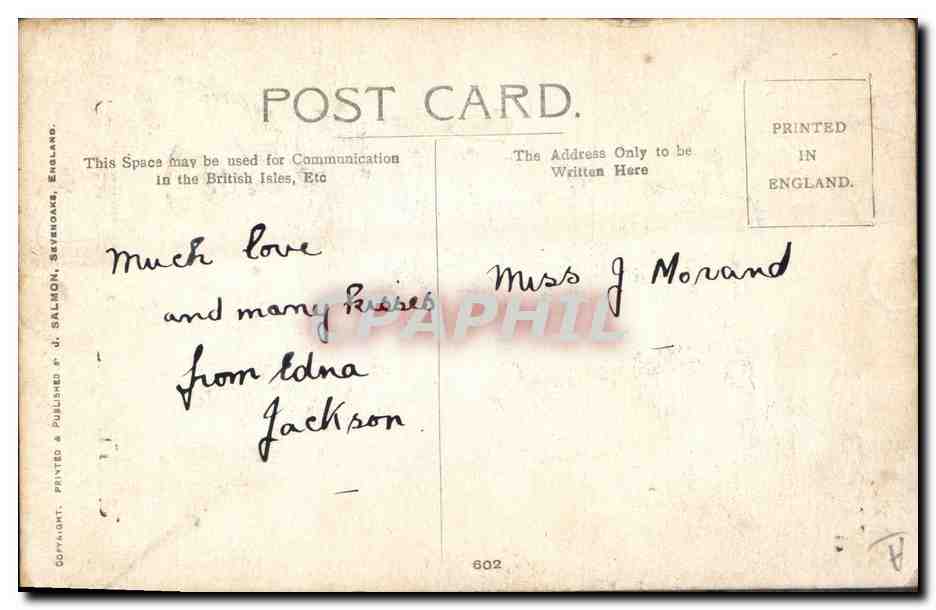 POST CARD.
This Space may be used for Communication
in the British Isles, Etc
The Address Only to be
Written Here
PRINTED
IN
ENGLAND.
COPYRIGHT. PRINTED & PUBLISHED BY J. SALMON, SEVENOAKS, ENGLAND.
Much love
and many kisses
from Edna
Jackson.
Miss J Morand
CPAPHIL
602
A